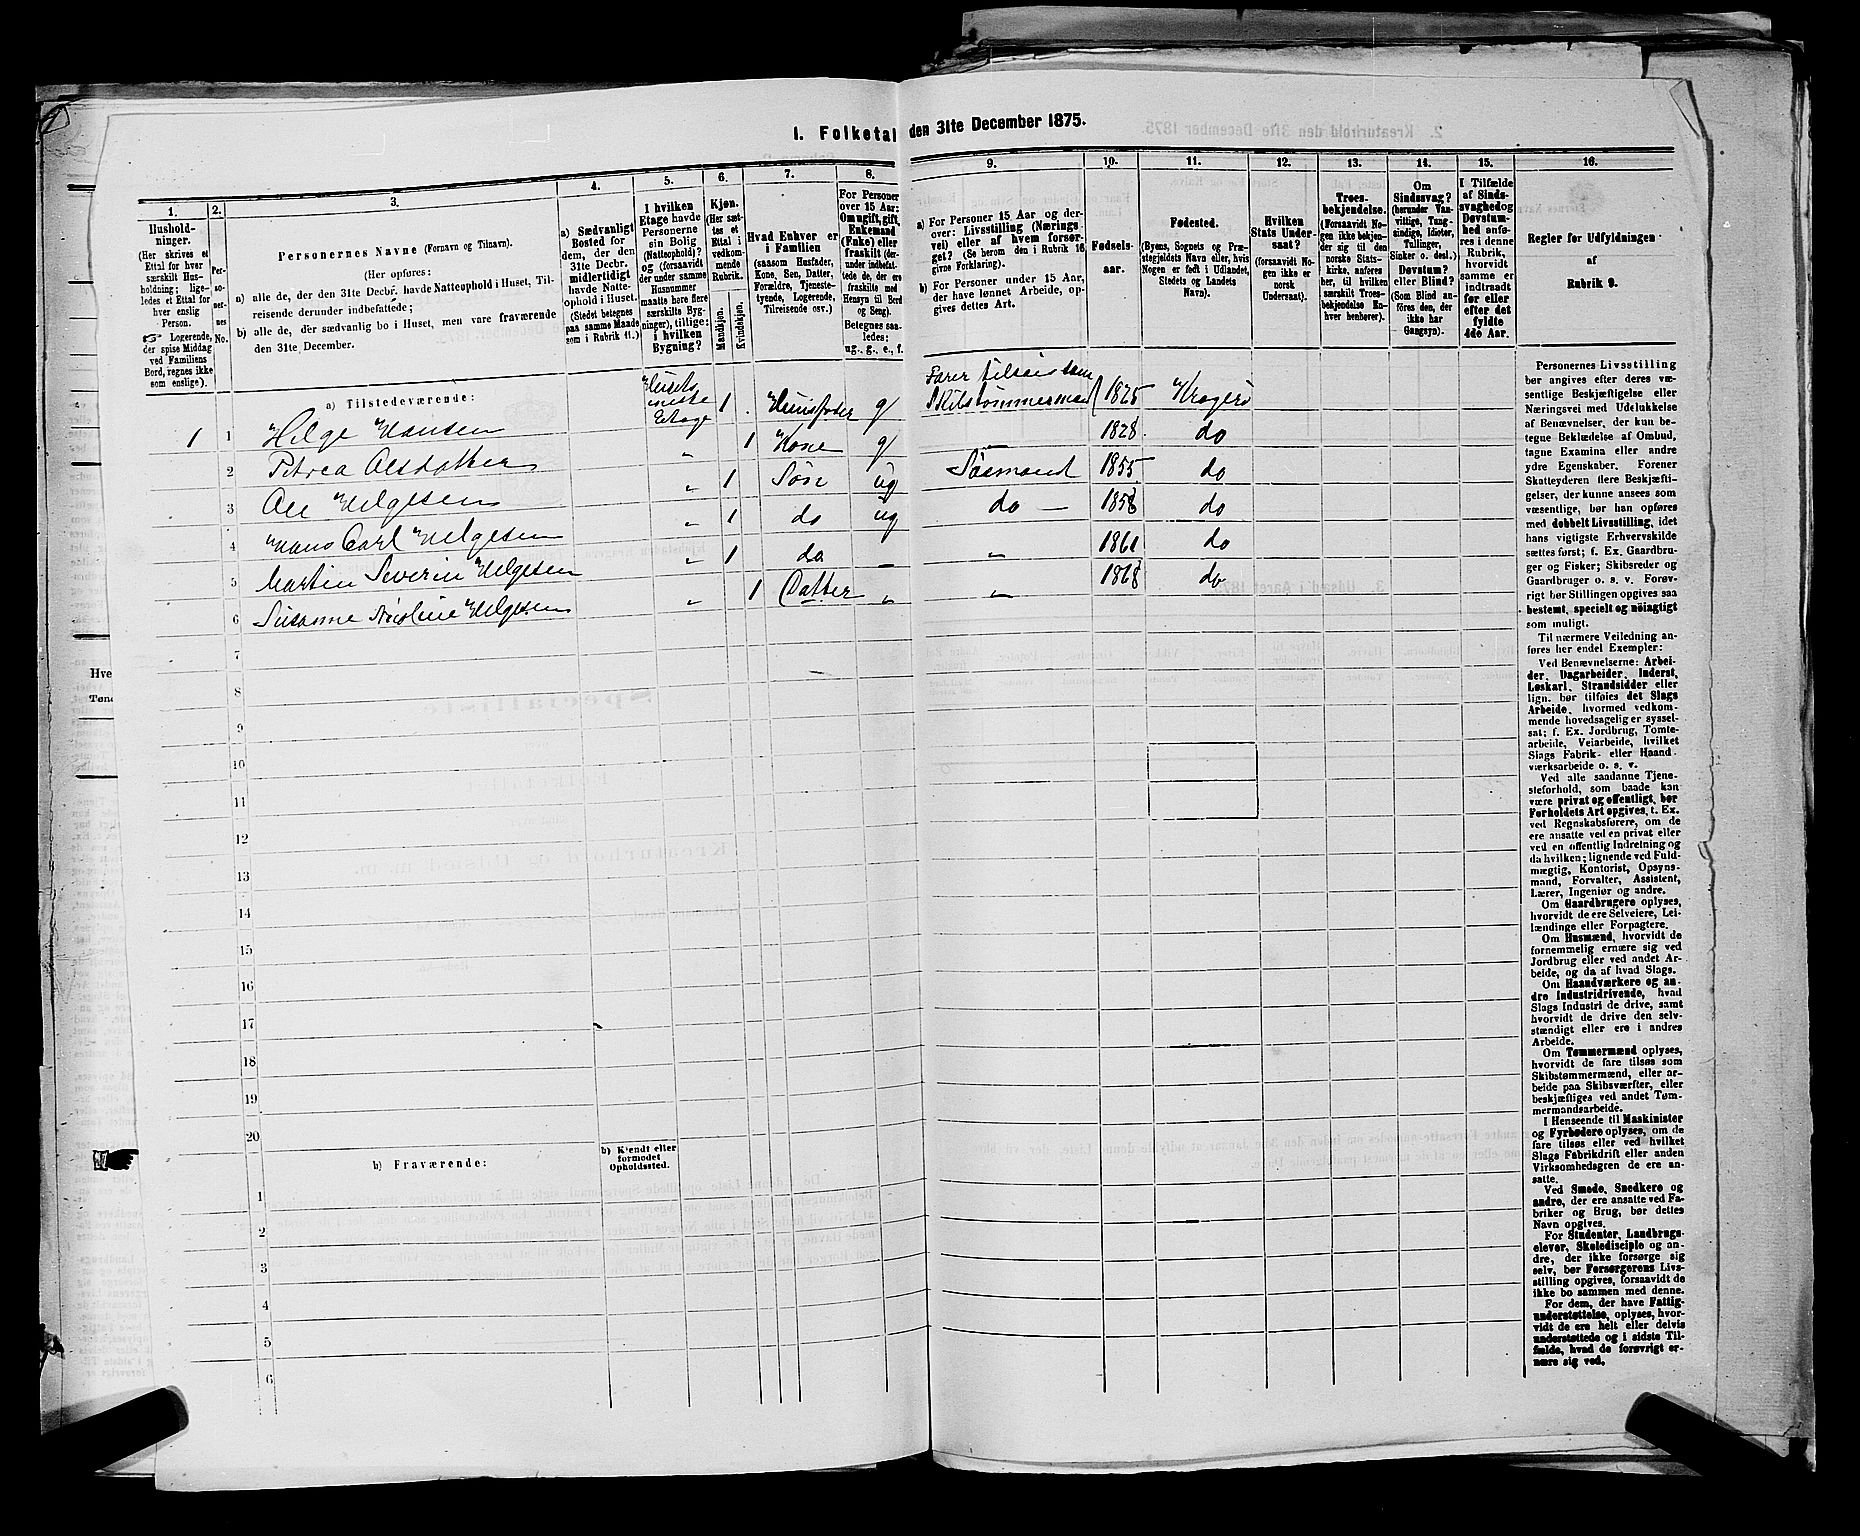 1. Folketal den 31te December 1875.
1.
2.
3.
4.
5.
6.
7.
8.
9.
10.
11.
12.
13.
14.
15.
16.
Husholdninger.
(Her skrives et
Ettal for hver
særskilt Hus-
holdning; lige-
ledes et Ettal for
hver enslig
Person.
Logerende,
der spise Middag
ved Familiens
Bord, regnes ikke
som enslige).
Per-
so-
ner-
nes
No.
Personernes Navne (Fornavn og Tilnavn).
(Her opføres:
a) alle de, der den 31te Decbr. havde Natteophold i Huset, Til-
reisende derunder indbefattede;
b) alle de, der sædvanlig bo i Huset, men vare fraværende
den 31te December.
a) Sædvanligt
Bosted for
dem, der den
31te Decbr.
midlertidigt
havde Natte-
ophold i Huset.
(Stedet betegnes
paa samme Maade
som i Rubrik 11.)
I hvilken
Etage havde
Personerne
sin Bolig
(Natteophold)?
og (forsaavidt
der under samme
Husnummer
maatte høre flere
særskilte Byg-
ninger), tillige:
i hvilken
Bygning?
Kjøn.
(Her sæt-
tes et
Ettal i
vedkom-
mende
Rubrik.
Mandkjøn.
Kvindkjøn.
Hvad Enhver er
i Familien
(saasom Husfader,
Kone, Søn, Datter,
Forældre, Tjeneste-
tyende, Logerende,
Tilreisende osv.)
For Personer
over 15 Aar:
Om ugift, gift,
Enkemand
(Enke) eller
fraskilt (der-
under indbefat-
tede de, der ere
fraskilte med
Hensyn til Bord
og Seng).
Betegnes saa-
ledes:
ug., g., e., f.
a) For Personer 15 Aar og der-
over: Livsstilling (Nærings-
vei) eller af hvem forsør-
get. (Se herom den i Rubrik 16
givne Forklaring).
b) For Personer under 15 Aar,
der have lønnet Arbeide, op-
gives dettes Art.
Fødsels-
aar.
Fødested.
(Byens, Sognets og Præ-
stegjeldets Navn eller, hvis
Nogen er født i Udlandet,
Stedets og Landets
Navn).
Hvilken
Stats Under-
saat?
(forsaavidt No-
gen ikke er
norsk
Undersaat).
Troes-
bekjendelse.
(Forsaavidt No-
gen ikke bekjen-
der sig til den
norske Stats-
kirke, anføres
her, til hvilken
særskilt Troes-
bekjendelse En-
hver henhører).
Om
Sindssvag?
(herunder Van-
vittige, Tung-
sindige, Idioter,
Tullinger,
Sinker o. desl.)
Døvstum?
eller Blind?
(Som Blind an-
føres den, der
ikke har
Gangsyn).
I Tilfælde
af Sinds-
svaghed og
Døvstum-
hed anfø-
res i denne
Rubrik,
hvorvidt
samme er
indtraadt
før eller
efter det
fyldte
4de Aar.
Regler for Udfyldningen
af
Rubrik 9.
a) Tilstedeværende:
1 1 Helge Hansen Husets nederste Etage 1 Huusfader g Farer tilsøis som Skibstømmermand 1825 Kragerø
2 Petrea Olsdatter „ 1 Kone g — 1828 do
3 Ole Helgesen „ 1 Søn ug Sømand 1855 do
4 Hans Carl Helgesen „ 1 do ug do — 1858 do
5 Martin Severin Helgesen „ 1 do — „ 1861 do
6 Susanne Nicoline Helgesen „ 1 Datter „ „ 1868 do
7
8
9
10
11
12
13
14
15
16
17
18
19
20
b) Fraværende:
b) Kjendt eller
formodet
Opholdssted.
1
2
3
4
5
6
Personernes Livsstilling
bør angives efter deres væ-
sentlige Beskjæftigelse eller
Næringsvei med Udelukkelse
af Benævnelser, der kun be-
tegne Beklædelse af Ombud,
tagne Examina eller andre
ydre Egenskaber. Forener
Skatteyderen flere Beskjæfti-
gelser, der kunne ansees som
væsentlige, bør han opføres
med dobbelt Livsstilling, idet
hans vigtigste Erhvervskilde
sættes først; f. Ex. Gaardbru-
ger og Fisker; Skibsreder og
Gaardbruger o. s. v. Forøv-
rigt bør Stillingen opgives saa
bestemt, specielt og nøiagtigt
som muligt.
Til nærmere Veiledning an-
føres her endel Exempler:
Ved Benævnelserne: Arbei-
der, Dagarbeider, Inderst,
Løskarl, Strandsidder eller
lign. bør tilføies det Slags
Arbeide, hvormed vedkom-
mende hovedsagelig er syssel-
sat; f. Ex. Jordbrug, Tomte-
arbeide, Veiarbeide, hvilket
Slags Fabrik- eller Haand-
værksarbeide o. s. v.
Ved alle saadanne Tjene-
steforhold, som baade kan
være privat og offentligt, bør
Forholdets Art opgives, t. Ex.
ved Regnskabsførere, om de
ere ansatte ved en privat eller
ved en offentlig Indretning og
da hvilken; lignende ved Fuld-
mægtig, Kontorist, Opsyns-
mand, Forvalter, Assistent,
Lærer, Ingeniør og andre.
Om Gaardbrugere oplyses,
hvorvidt de ere Selveiere, Lei-
lændinge eller Forpagtere.
Om Husmænd, hvorvidt de
fornemmelig ernære sig ved
Jordbrug eller ved andet Ar-
beide, og da af hvad Slags.
Om Haandværkere og an-
dre Industridrivende, hvad
Slags Industri de drive, samt
hvorvidt de drive den selv-
stændigt eller ere i andres
Arbeide.
Om Tømmermænd oplyses,
hvorvidt de fare tilsøs som
Skibstømmermænd, eller ar-
beide paa Skibsværfter, eller
beskjæftiges ved andet Tøm-
mermandsarbeide.
I Henseende til Maskinister
og Fyrbødere oplyses, om de
fare tilsøs eller ved hvilket
Slags Fabrikdrift eller anden
Virksomhedsgren de ere an-
satte.
Ved Smede, Snedkere og
andre, der ere ansatte ved Fa-
briker og Brug, bør dettes
Navn opgives.
For Studenter, Landbrugs-
elever, Skoledisciple og an-
dre, der ikke forsørge sig
selv, bør Forsørgerens Livs-
stilling opgives, forsaavidt de
ikke bo sammen med denne.
For dem, der have Fattig-
understøttelse, oplyses, hvor-
vidt de ere helt eller delvis
understøttede og i sidste Til-
fælde, hvad de forøvrigt er-
nære sig ved.